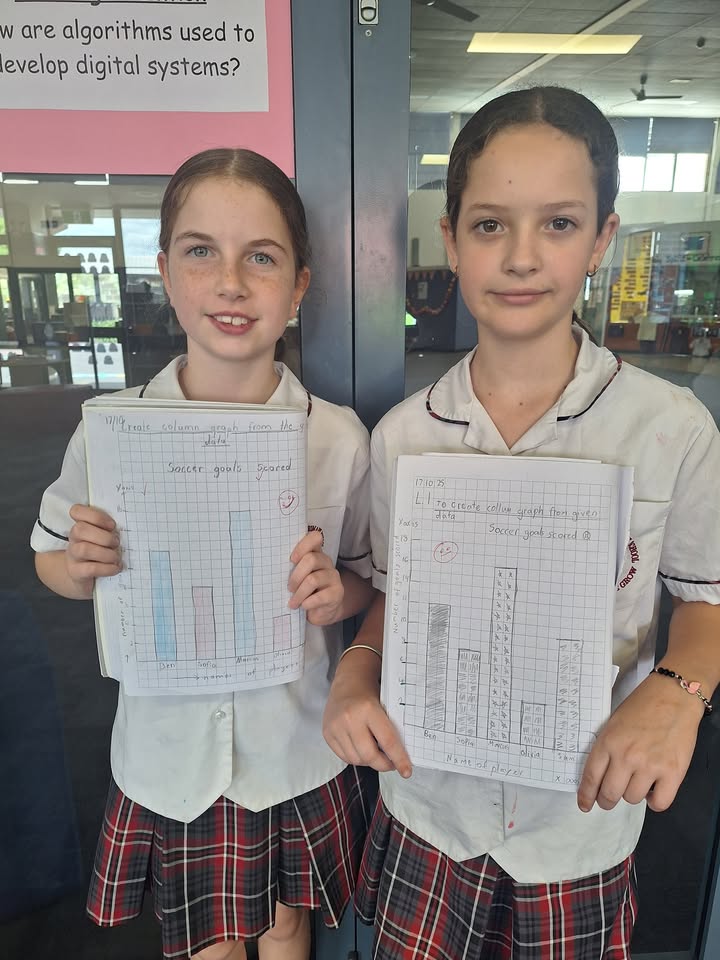 w are algorithms used to
develop digital systems?
17/10
Create column graph from the g
data
Soccer goals scored
Ben
Sofia
Marcin
name of players
17.10.25
L.I To create collum graph from given
data
Soccer goals scored
Y axis
Number of goals scored
Ben
Sofia
Marcin
Olivia
Sam
Name of player
X axis
GROW